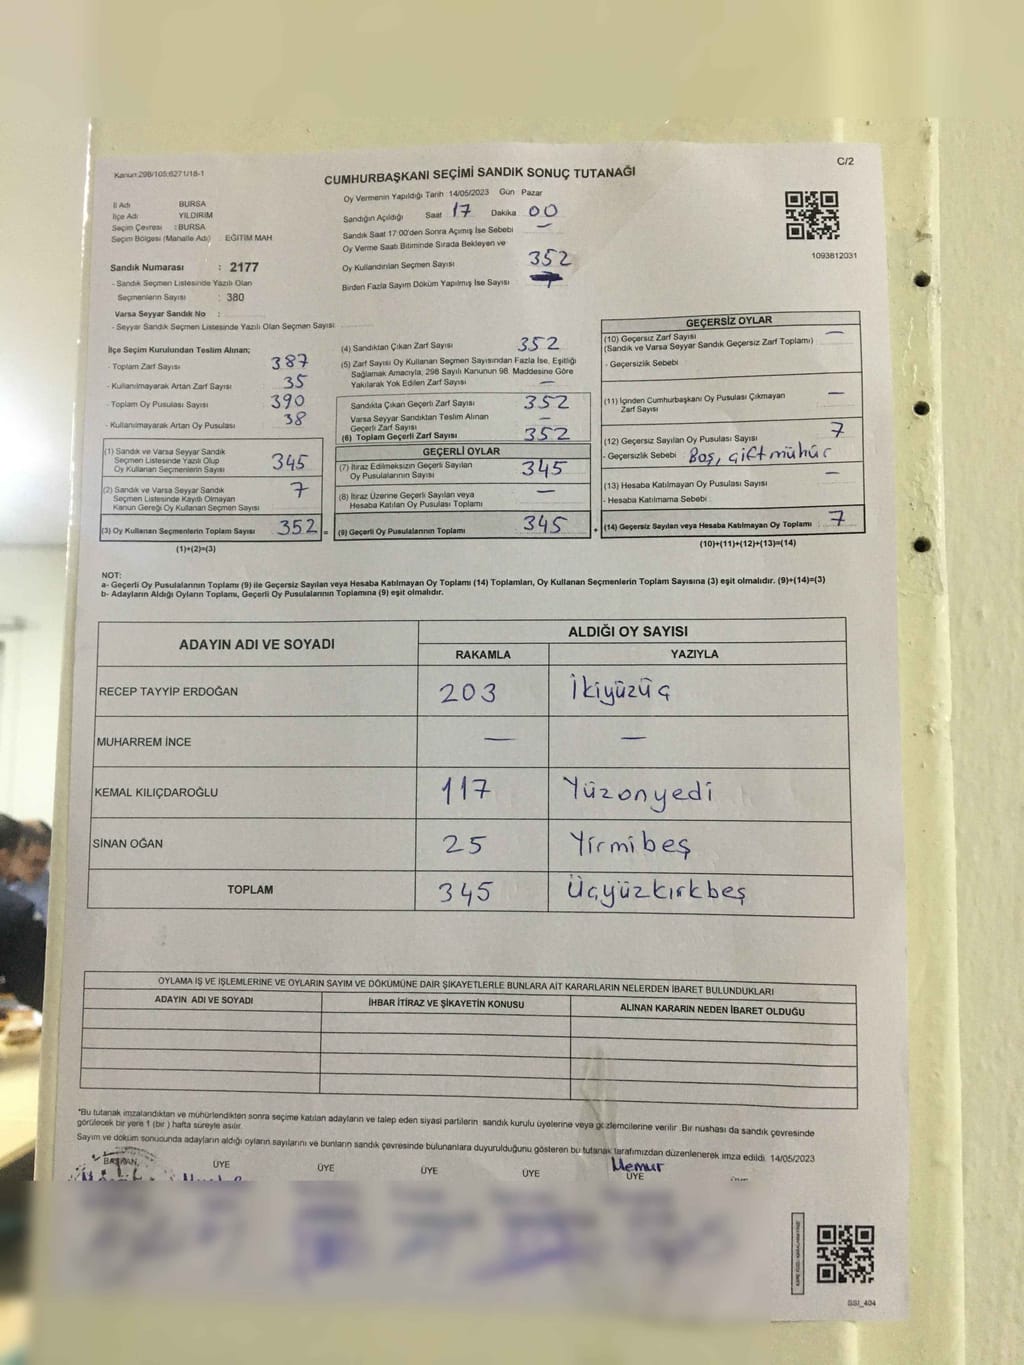 Kanun:298/105;6271/18-1
C/2
CUMHURBAŞKANI SEÇİMİ SANDIK SONUÇ TUTANAĞI
İl Adı BURSA
İlçe Adı YILDIRIM
Seçim Çevresi : BURSA
Seçim Bölgesi (Mahalle Adı) EĞİTİM MAH
Sandık Numarası : 2177
- Sandık Seçmen Listesinde Yazılı Olan
Seçmenlerin Sayısı : 380
Varsa Seyyar Sandık No :
- Seyyar Sandık Seçmen Listesinde Yazılı Olan Seçmen Sayısı
Oy Vermenin Yapıldığı Tarih 14/05/2023 Gün Pazar
Sandığın Açıldığı Saat 17 Dakika 00
Sandık Saat 17:00'den Sonra Açımış İse Sebebi —
Oy Verme Saati Bitiminde Sırada Bekleyen ve
Oy Kullandırılan Seçmen Sayısı 352
Birden Fazla Sayım Döküm Yapılmış İse Sayısı
1093812031
İlçe Seçim Kurulundan Teslim Alınan;
- Toplam Zarf Sayısı 387
- Kullanılmayarak Artan Zarf Sayısı 35
- Toplam Oy Pusulası Sayısı 390
- Kullanılmayarak Artan Oy Pusulası 38
(1) Sandık ve Varsa Seyyar Sandık
Seçmen Listesinde Yazılı Olup
Oy Kullanan Seçmenlerin Sayısı 345
(2) Sandık ve Varsa Seyyar Sandık
Seçmen Listesinde Kayıtlı Olmayan
Kanun Gereği Oy Kullanan Seçmen Sayısı 7
(3) Oy Kullanan Seçmenlerin Toplam Sayısı 352 =
(1)+(2)=(3)
(4) Sandıktan Çıkan Zarf Sayısı 352
(5) Zarf Sayısı Oy Kullanan Seçmen Sayısından Fazla İse, Eşitliği
Sağlamak Amacıyla, 298 Sayılı Kanunun 98. Maddesine Göre
Yakılarak Yok Edilen Zarf Sayısı —
Sandıkta Çıkan Geçerli Zarf Sayısı 352
Varsa Seyyar Sandıktan Teslim Alınan
Geçerli Zarf Sayısı —
(6) Toplam Geçerli Zarf Sayısı 352
GEÇERLİ OYLAR
(7) İtiraz Edilmeksizin Geçerli Sayılan
Oy Pusulalarının Sayısı 345
(8) İtiraz Üzerine Geçerli Sayılan veya
Hesaba Katılan Oy Pusulası Toplamı —
(9) Geçerli Oy Pusulalarının Toplamı 345 +
GEÇERSİZ OYLAR
(10) Geçersiz Zarf Sayısı —
(Sandık ve Varsa Seyyar Sandık Geçersiz Zarf Toplamı)
- Geçersizlik Sebebi
(11) İçinden Cumhurbaşkanı Oy Pusulası Çıkmayan
Zarf Sayısı —
(12) Geçersiz Sayılan Oy Pusulası Sayısı 7
- Geçersizlik Sebebi Boş, çift mühür
(13) Hesaba Katılmayan Oy Pusulası Sayısı —
- Hesaba Katılmama Sebebi
(14) Geçersiz Sayılan veya Hesaba Katılmayan Oy Toplamı 7
(10)+(11)+(12)+(13)=(14)
NOT:
a- Geçerli Oy Pusulalarının Toplamı (9) ile Geçersiz Sayılan veya Hesaba Katılmayan Oy Toplamı (14) Toplamları, Oy Kullanan Seçmenlerin Toplam Sayısına (3) eşit olmalıdır. (9)+(14)=(3)
b- Adayların Aldığı Oyların Toplamı, Geçerli Oy Pusulalarının Toplamına (9) eşit olmalıdır.
ADAYIN ADI VE SOYADI
ALDIĞI OY SAYISI
RAKAMLA YAZIYLA
RECEP TAYYİP ERDOĞAN 203 İkiyüzüç
MUHARREM İNCE — —
KEMAL KILIÇDAROĞLU 117 Yüzonyedi
SİNAN OĞAN 25 Yirmibeş
TOPLAM 345 Üçyüzkırkbeş
OYLAMA İŞ VE İŞLEMLERİNE VE OYLARIN SAYIM VE DÖKÜMÜNE DAİR ŞİKAYETLERLE BUNLARA AİT KARARLARIN NELERDEN İBARET BULUNDUKLARI
ADAYIN ADI VE SOYADI İHBAR İTİRAZ VE ŞİKAYETİN KONUSU ALINAN KARARIN NEDEN İBARET OLDUĞU
*Bu tutanak imzalandıktan ve mühürlendikten sonra seçime katılan adayların ve talep eden siyasi partilerin sandık kurulu üyelerine veya gözlemcilerine verilir. Bir nüshası da sandık çevresinde
görülecek bir yere 1 (bir ) hafta süreyle asılır.
Sayım ve döküm sonucunda adayların aldığı oyların sayılarını ve bunların sandık çevresinde bulunanlara duyurulduğunu gösteren bu tutanak tarafımızdan düzenlenerek imza edildi. 14/05/2023
BAŞKAN ÜYE ÜYE ÜYE ÜYE Memur ÜYE
SSI_404